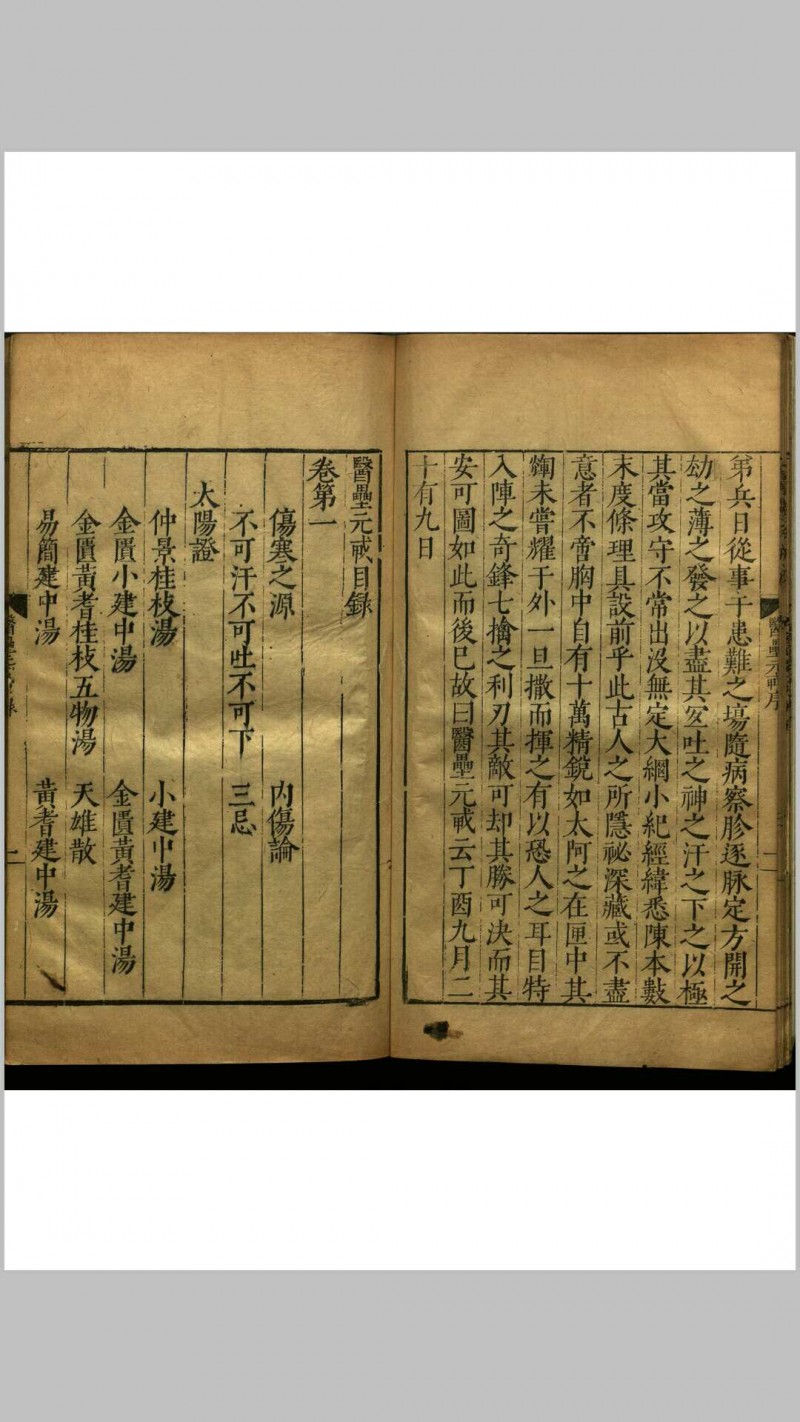 第兵日從事于患難之塲隨病察胗逐脉定方開之
劫之薄之發之以盡其㝎吐之神之汗之下之以極
其當攻守不常出没無定大綱小紀經緯悉陳本數
末度條理具設前乎此古人之所隱祕深藏或不盡
意者不啻胸中自有十萬精銳如太阿之在匣中其
鋼未嘗耀于外一旦撒而揮之有以恐人之耳目特
入陣之奇鋒七擒之利刃其敵可却其勝可決而其
安可圖如此而後已故曰醫壘元戒云丁酉九月二
十有九日
醫壘元戒序
二
醫壘元戒目錄
卷第一
傷寒之源 内傷論
不可汗不可吐不可下 三忌
太陽證
仲景桂枝湯 小建中湯
金匱小建中湯 金匱黃耆建中湯
金匱黃耆桂枝五物湯 天雄散
易簡建中湯 黃耆建中湯
二